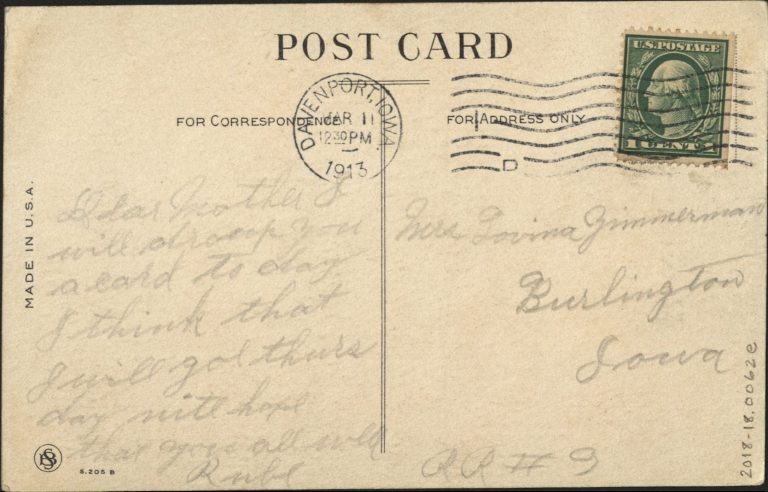 POST CARD
U.S. POSTAGE
1 CENT 1
DAVENPORT, IOWA
MAR 11
12 30 PM
1913
D
FOR CORRESPONDENCE
FOR ADDRESS ONLY
MADE IN U.S.A.
Dear Mother I
will droop you
a card to day
I think that
I will go thurs
day nite hope
that you all well
Rube
Mrs Lovina Zimmerman
Burlington
Iowa
RR # 3
S. 205 B
2018-18.0062e